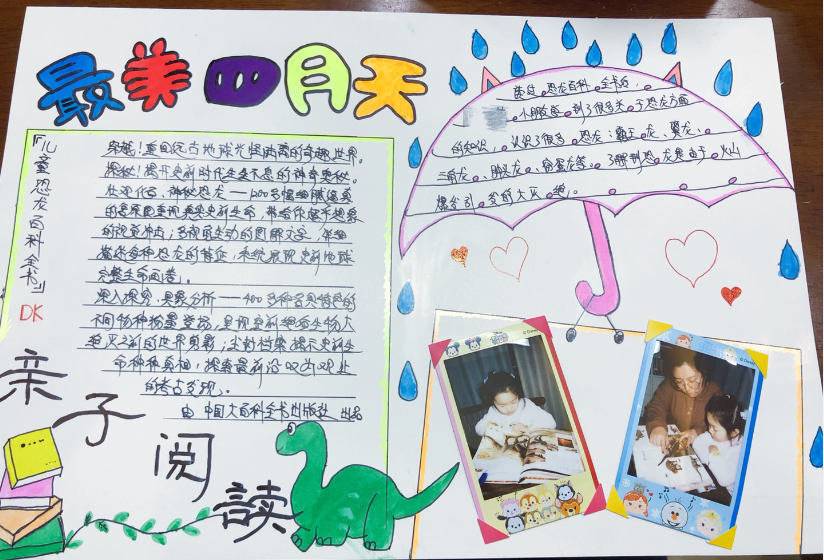 最美四月天
『儿童恐龙百科全书』
DK
穿越!重回远古地球光怪陆离的奇趣世界。
探秘!揭开史前时代生生不息的神奇奥秘。
壮观化石、神秘恐龙——1200多幅细腻逼真
的显示史前生命,带给你
的视觉冲击;多视角生动的图解文字,详细
描述各种恐龙的特征,系统展现史前地球
完整生命画卷。
深入探究,具象分析——400多种各具特色的
不同物种粉墨登场,呈现史前绝西生物大
绝灭之前的世界剪影;尘封档案揭示史前生
命种种真相,探索最前沿
的考古发现。
由 中国大百科全书出版社 出品
亲子阅读
恐龙百科全书后,
小朋友 到了很多关于恐龙方面
的知识,认识了很多恐龙:霸王龙、翼龙、
三角龙、 龙、窃蛋龙等。了解到恐龙是由于火山
爆发引发的大灭绝。